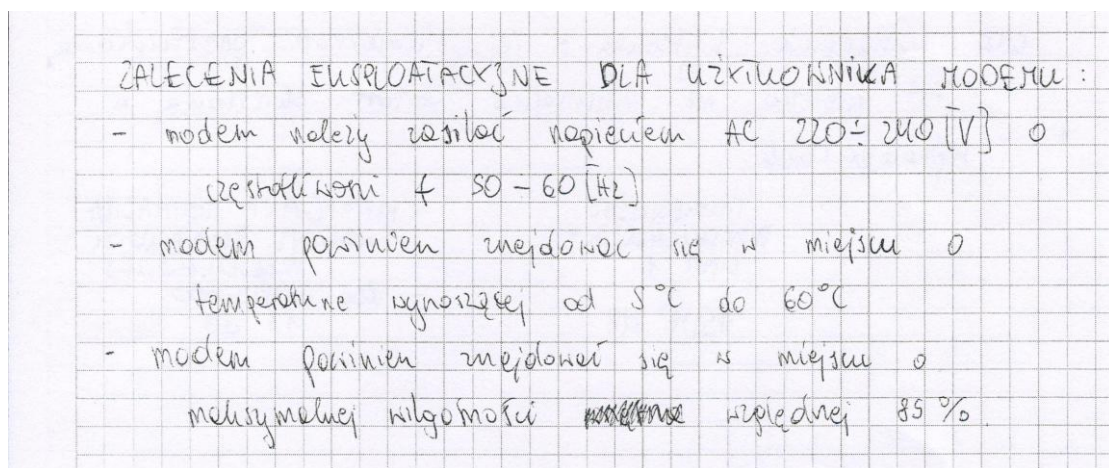 ZALECENIA EKSPLOATACYJNE DLA UŻYTKOWNIKA MODEMU :
- modem należy zasilać napięciem AC 220÷240 [V] o
częstotliwości f 50-60 [Hz]
- modem powinien znajdować się w miejscu o
temperaturze wynoszącej od 5°C do 60°C
- modem powinien znajdować się w miejscu o
maksymalnej wilgotności względnej 85%.